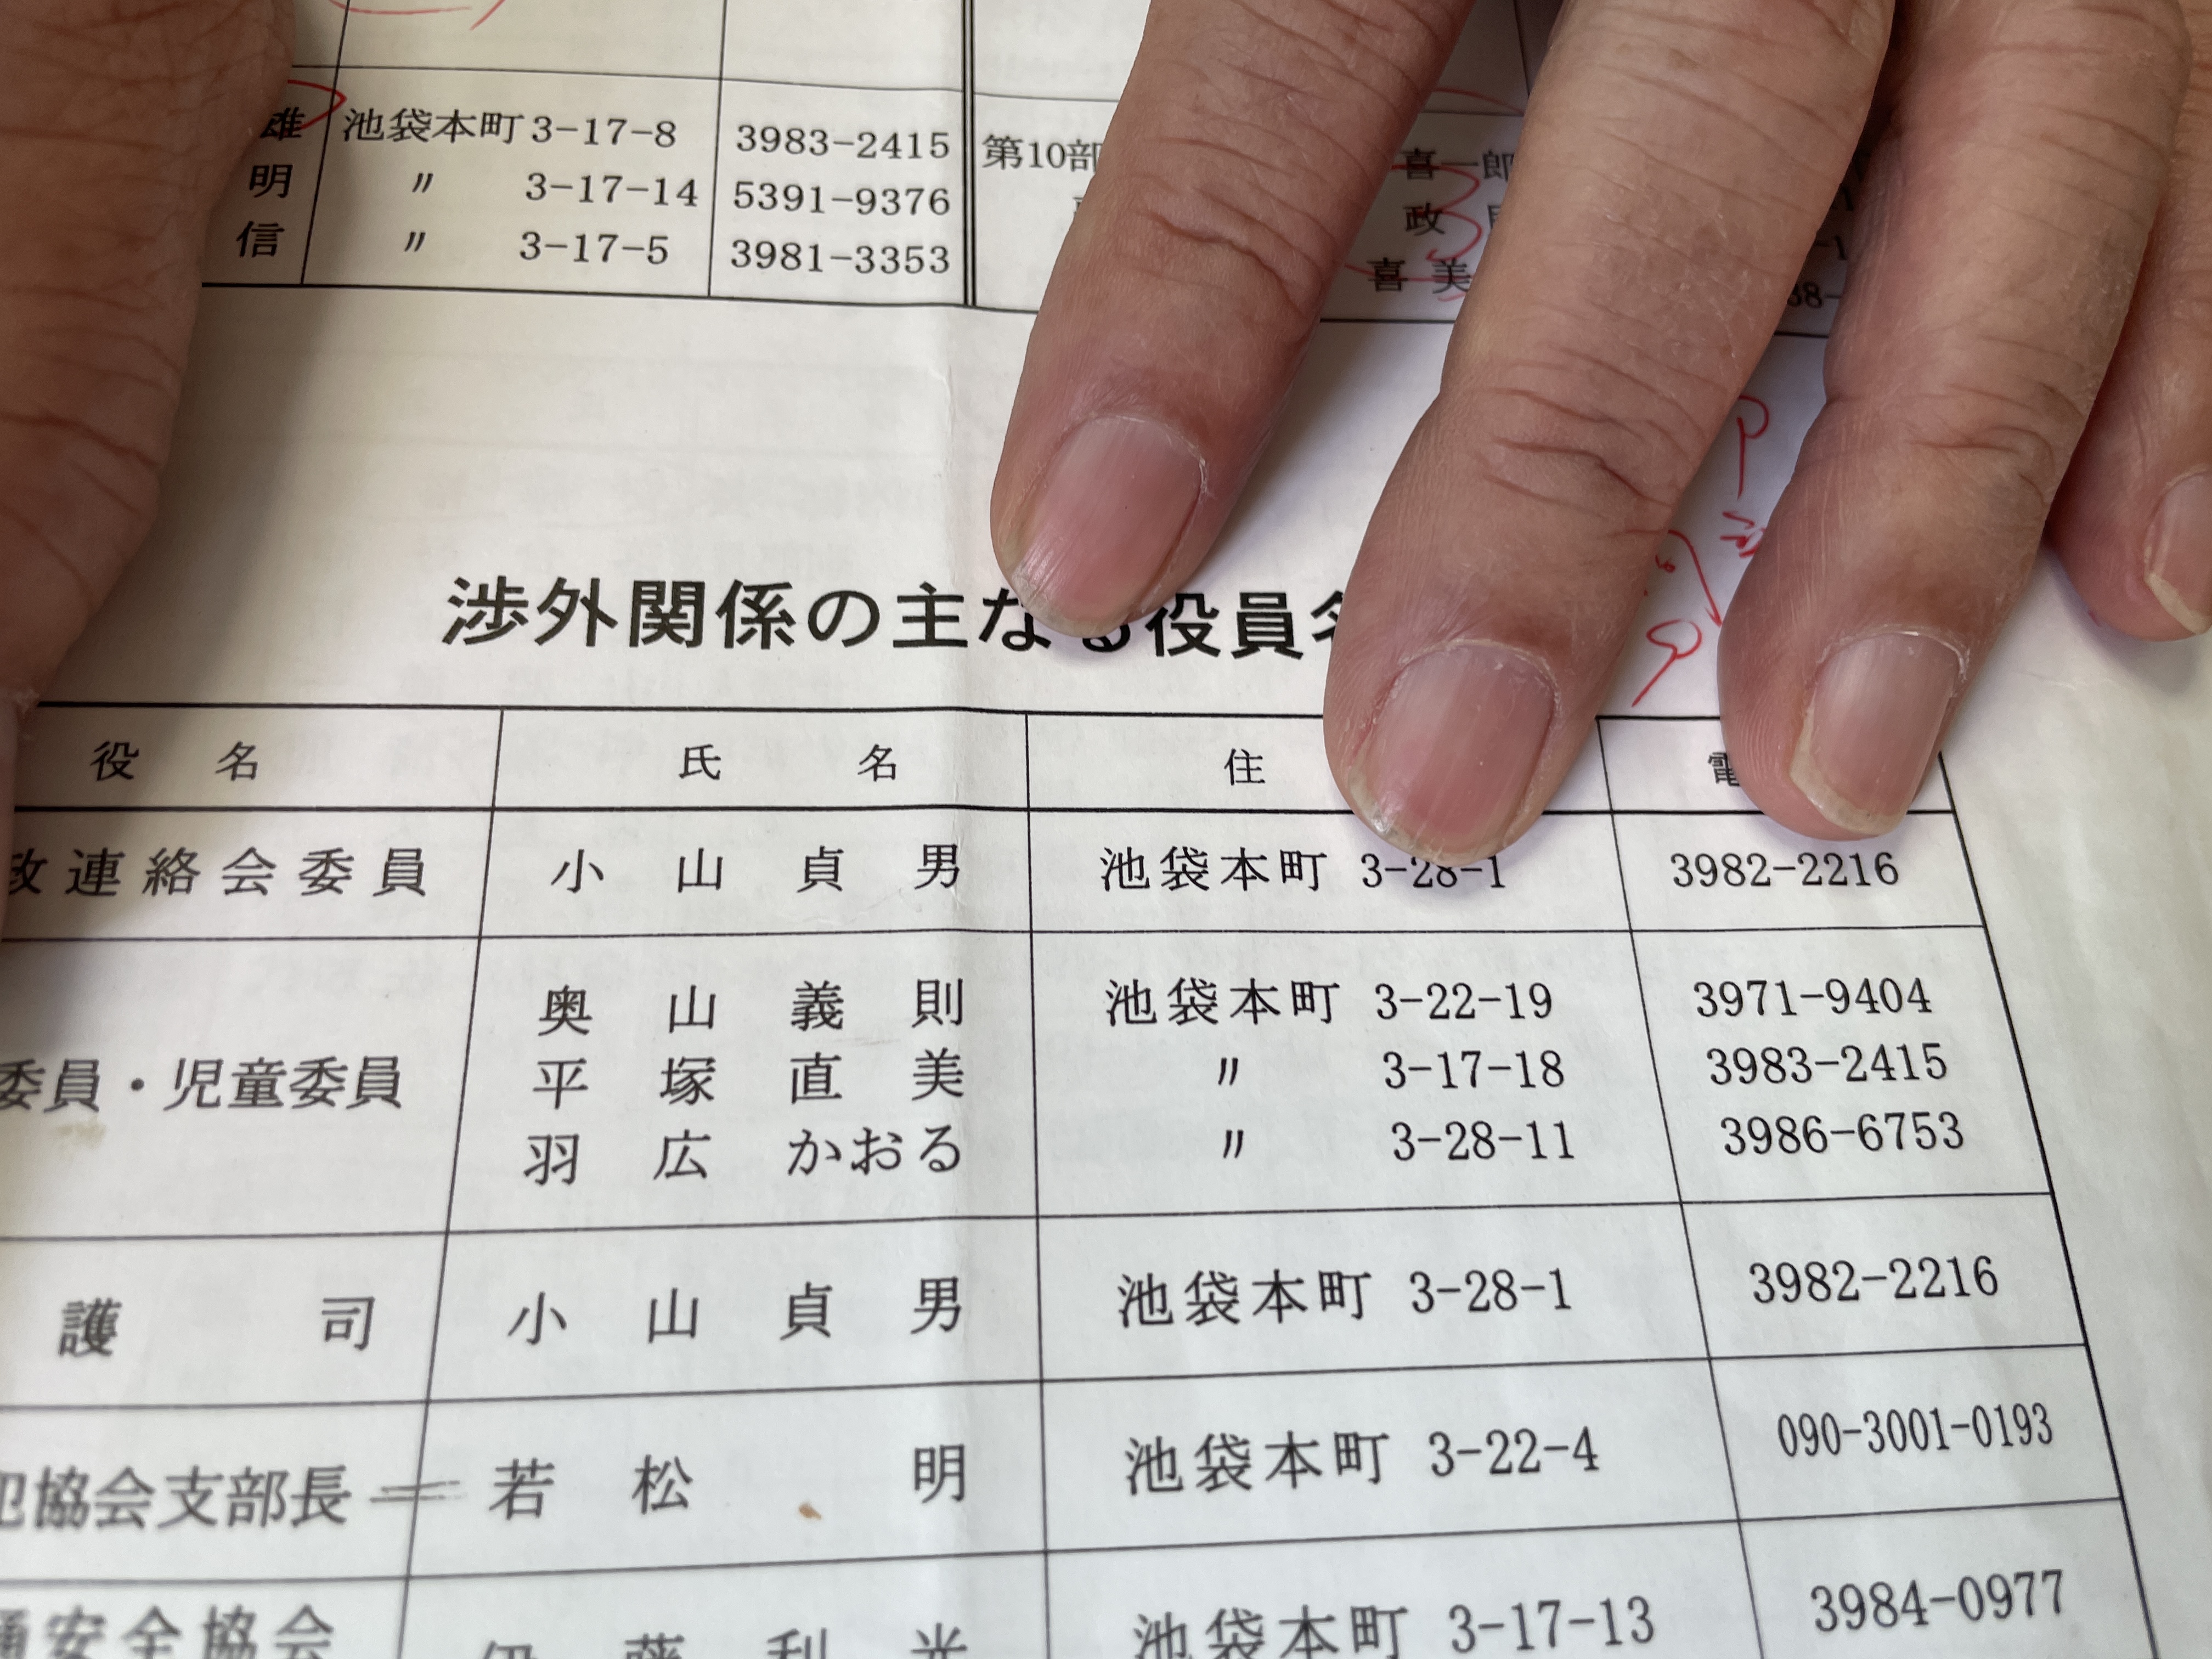 雄 池袋本町 3-17-8 3983-2415 第10部 喜一郎
明 〃 3-17-14 5391-9376 政
信 〃 3-17-5 3981-3353 喜美
渉外関係の主なる役員名
役名 氏名 住 電
政連絡会委員 小山貞男 池袋本町 3-28-1 3982-2216
奥山義則 池袋本町 3-22-19 3971-9404
委員・児童委員 平塚直美 〃 3-17-18 3983-2415
羽広かおる 〃 3-28-11 3986-6753
護司 小山貞男 池袋本町 3-28-1 3982-2216
犯協会支部長 若松明 池袋本町 3-22-4 090-3001-0193
通安全協会 伊藤利光 池袋本町 3-17-13 3984-0977